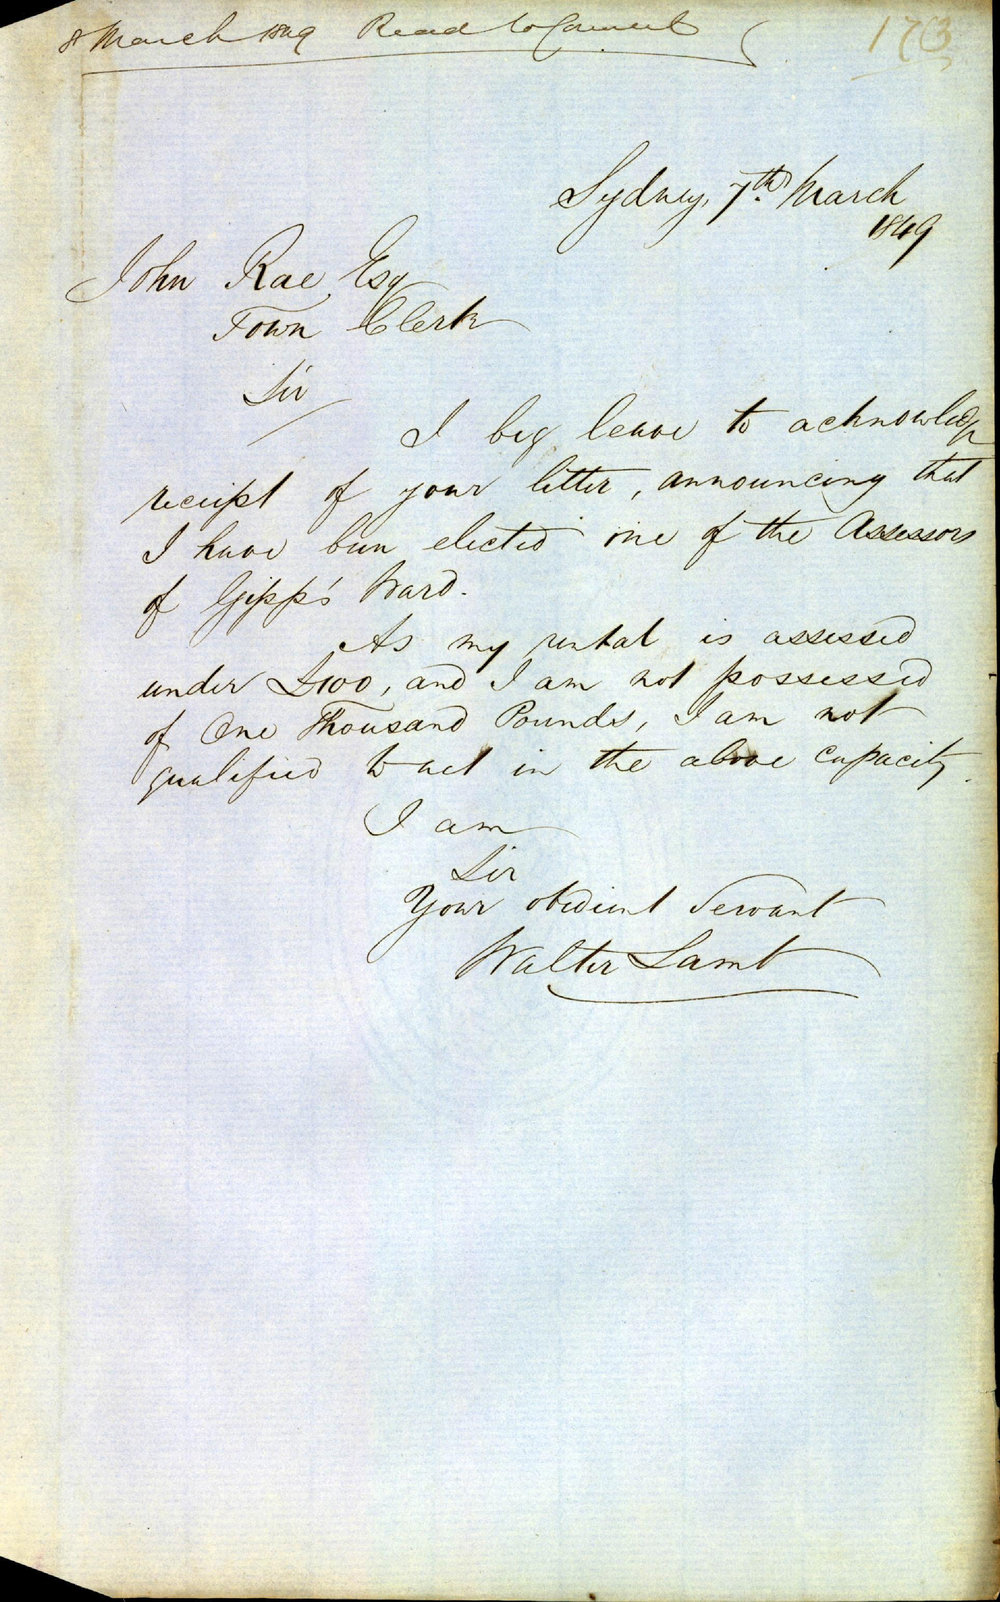 8 March 1849 Read to Council
173
Sydney, 7th. March
1849
John Rae Esq
Town Clerk
Sir
I beg leave to acknowledge
receipt of your letter, announcing that
I have been elected one of the Assessors
of Gipps' Ward.
As my rental is assessed
under £100, and I am not possessed
of One Thousand Pounds, I am not
qualified to act in the above capacity.
I am
Sir
Your obedient Servant
Walter Lamb